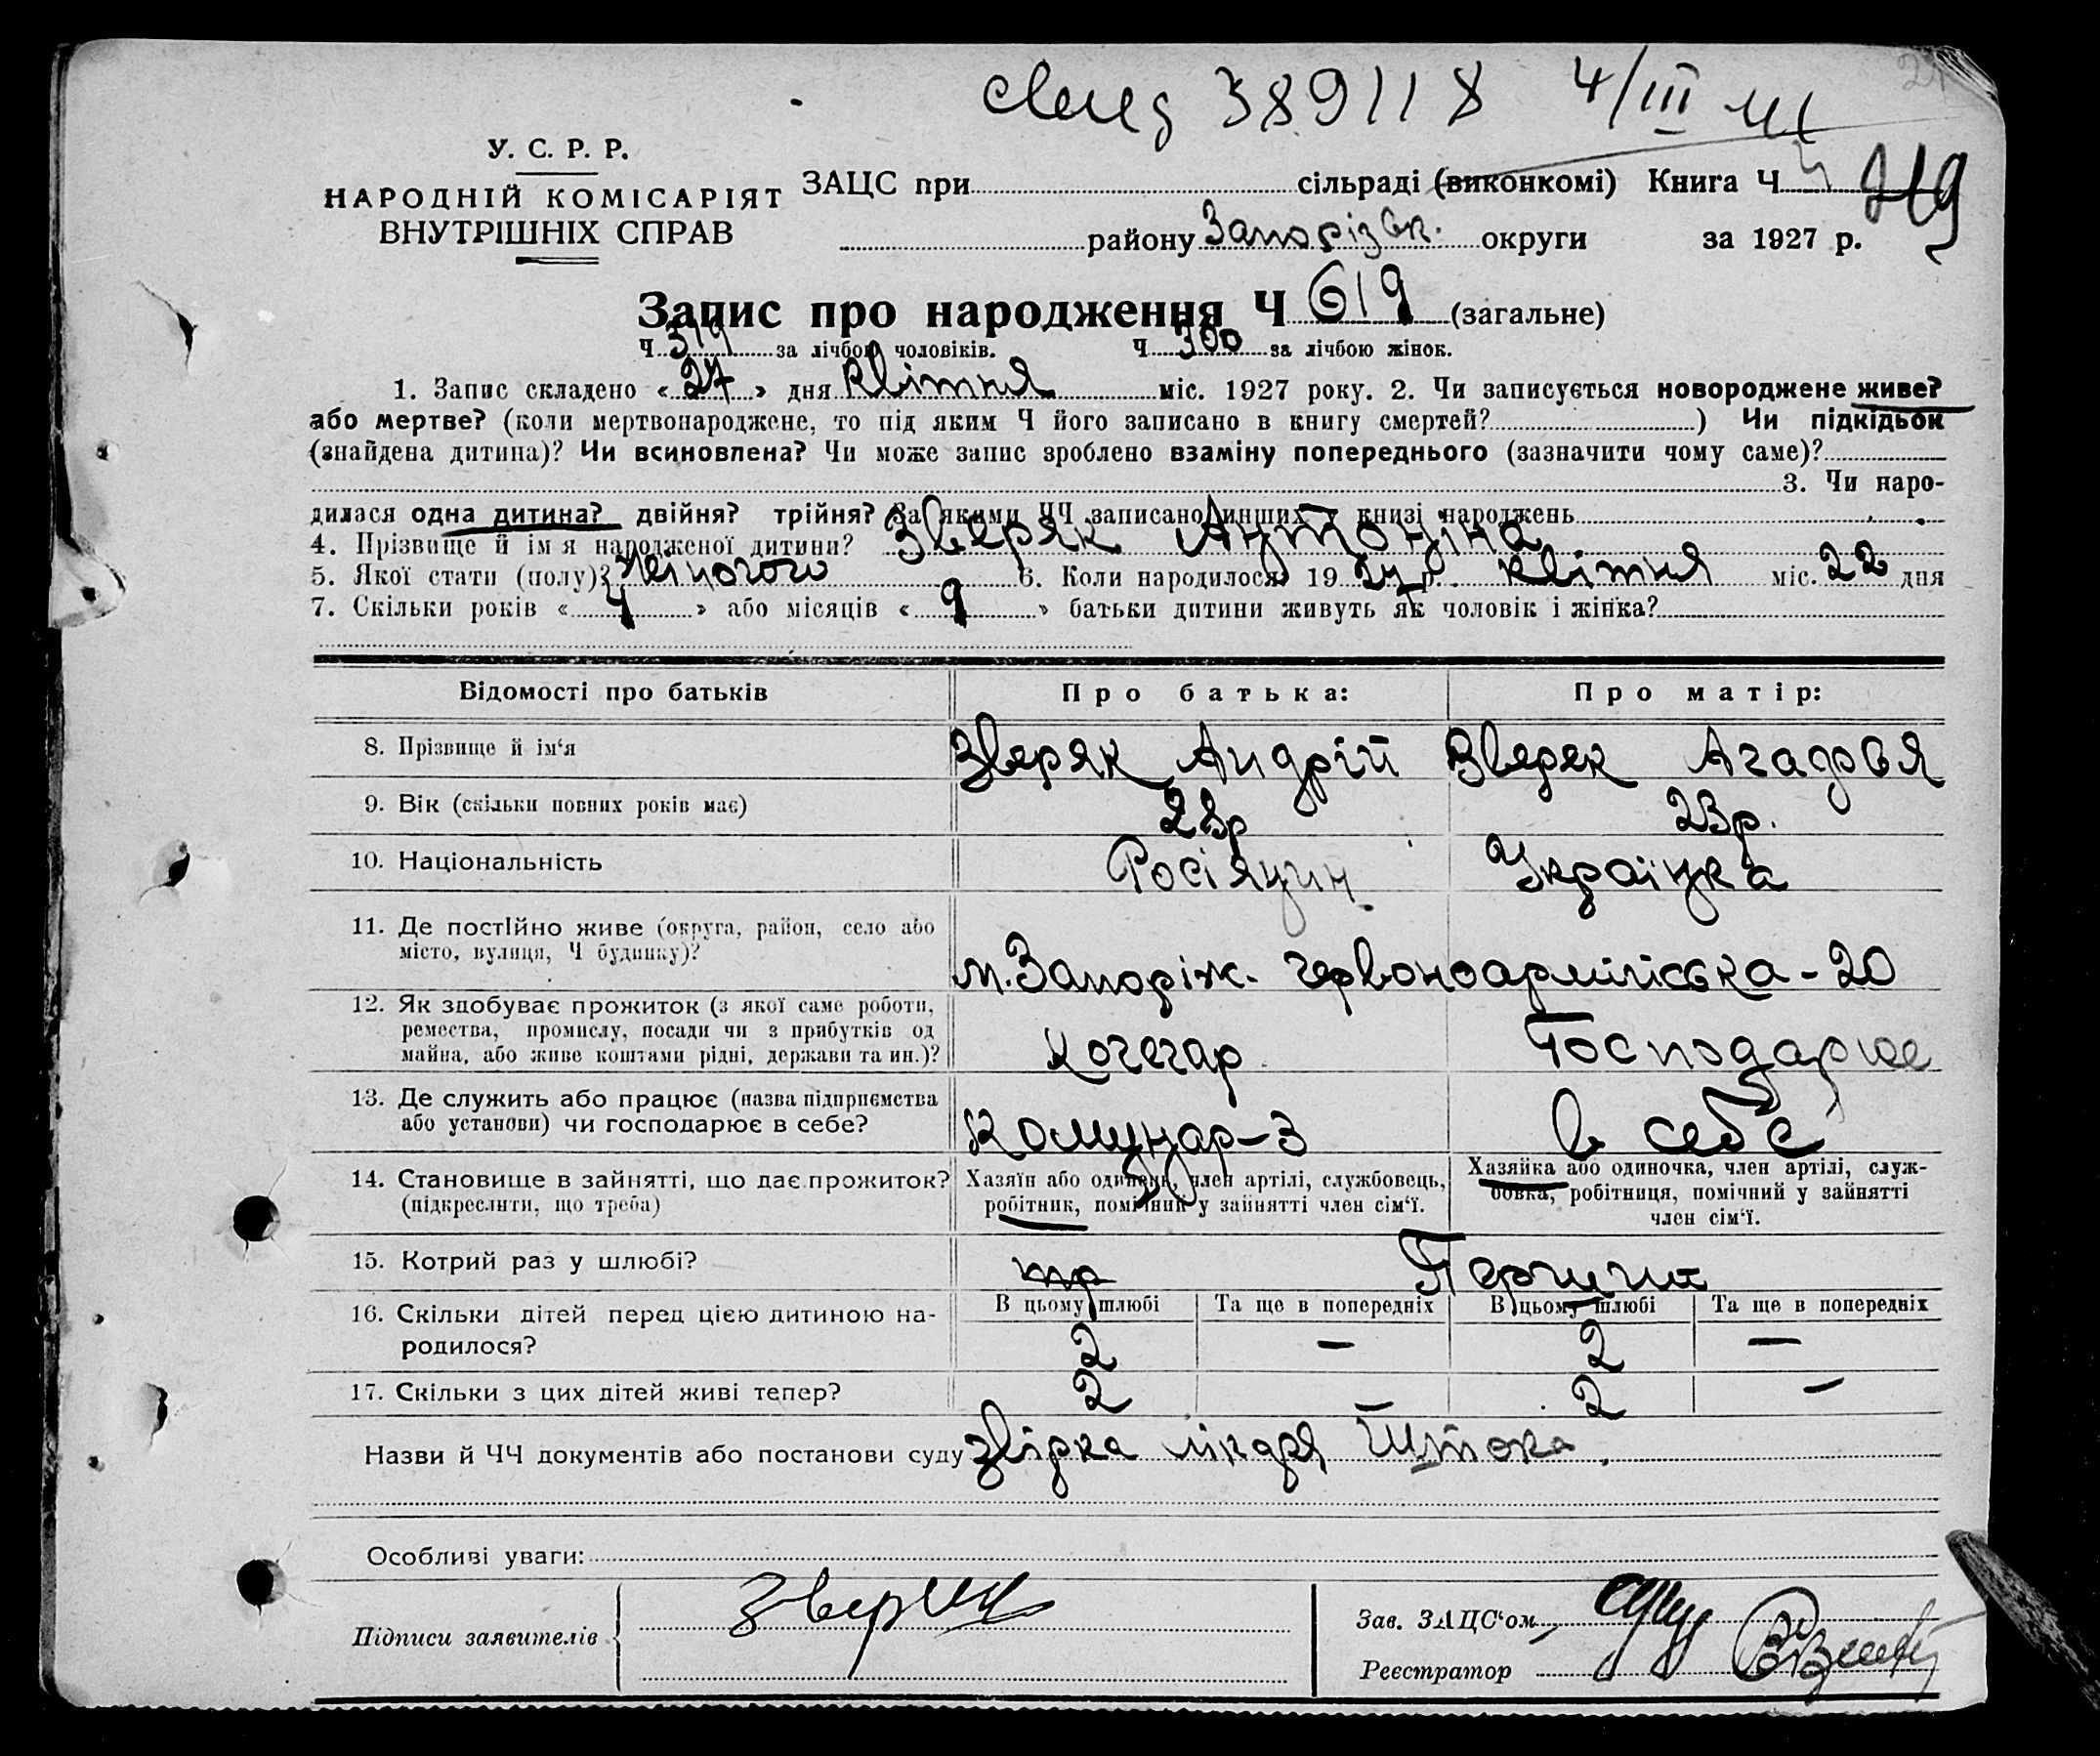 389118 4/III
У. С. Р. Р.
НАРОДНІЙ КОМІСАРІЯТ
ВНУТРІШНІХ СПРАВ
ЗАЦС при сільраді (виконкомі) Книга Ч 219
району Запорізьк. округи за 1927 р.
Запис про народження Ч 619 (загальне)
Ч 319 за лічбою чоловіків. Ч 300 за лічбою жінок.
1. Запис складено «27» дня квітня міс. 1927 року. 2. Чи записується новороджене живе?
або мертве? (коли мертвонароджене, то під яким Ч його записано в книгу смертей? ) Чи підкідьок
(знайдена дитина)? Чи всиновлена? Чи може запис зроблено взаміну попереднього (зазначити чому саме)?
3. Чи наро-
дилася одна дитина? двійня? трійня? За якими ЧЧ записано инших у книзі народжень
4. Прізвище й ім'я народженої дитини? Зверяк Антоніна
5. Якої стати (полу)? жіночого 6. Коли народилося? 19 27 р. квітня міс. 22 дня
7. Скільки років «4» або місяців «9» батьки дитини живуть як чоловік і жінка?
Відомості про батьків Про батька: Про матір:
8. Прізвище й ім'я Зверяк Андрій Зверек Агафія
9. Вік (скільки повних років має) 23р.
10. Національність Росіянин Українка
11. Де постійно живе (округа, район, село або
місто, вулиця, Ч будинку)? м. Запоріж. Червоноармійська - 20
12. Як здобуває прожиток (з якої саме роботи,
ремества, промислу, посади чи з прибутків од
майна, або живе коштами рідні, держави та ин.)? Кочегар Господарює
13. Де служить або працює (назва підприємства
або установи) чи господарює в себе? Комунар-З в себе
14. Становище в зайнятті, що дає прожиток?
(підкреслити, що треба)
Хазяїн або одинець, член артілі, службовець,
робітник, помічник у зайнятті член сім'ї.
Хазяйка або одиночка, член артілі, служ-
бовка, робітниця, помічний у зайнятті
член сім'ї.
15. Котрий раз у шлюбі? Перший
16. Скільки дітей перед цією дитиною на-
родилося?
В цьому шлюбі Та ще в попередніх В цьому шлюбі Та ще в попередніх
2 — 2 —
17. Скільки з цих дітей живі тепер? 2 2 —
Назви й ЧЧ документів або постанови суду звірка лікаря Штока.
Особливі уваги:
Підписи заявителів
Зав. ЗАЦС'ом
Реєстратор